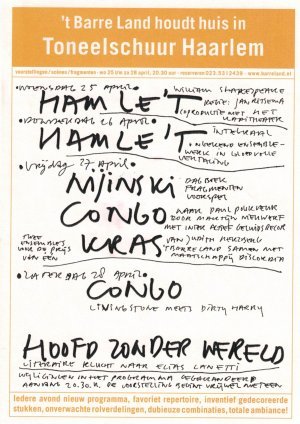 't Barre Land houdt huis in
Toneelschuur Haarlem
voorstellingen / scènes / fragmenten - wo 25 t/m za 28 april, 20.30 uur - reserveren 023.5312439 - www.barreland.nl
• WOENSDAG 25 April •
HAMLE'T
WILLIAM SHAKESPEARE
REGIE: JAN RITSEMA
COPRODUCTIE MET HET
KAAITHEATER
• DONDERDAG 26 April •
HAMLE'T
INTEGRAAL
ONGEKEND ENSEMBLE-
WERK IN
VERTALING
• Vrijdag 27 April •
NIJINSKI
DAGBOEK
FRAGMENTEN
VOORSPEL
CONGO
NAAR PAUL
DOOR MARTIJN NIEUWERF
MET INTERACTIEF GELUIDSDECOR
TWEE
ENSEMBLES
VOOR DE PRIJS
VAN EEN
KRAS
JAN JUDITH HERZBERG
'TBARRELAND SAMEN MET
MAATSCHAPPIJ DISCORDIA
• ZATERDAG 28 April •
CONGO
LIVINGSTONE MEETS DIRTY HARRY
HOOFD ZONDER WERELD
LITERAIRE KLUCHT NAAR ELIAS CANETTI
WIJZIGINGEN IN HET PROGRAMMA GEGARANDEERD
AANVANG 20.30 u. DE VOORSTELLING BEGINT VRIJWEL METEEN
Iedere avond nieuw programma, favoriet repertoire, inventief gedecoreerde
stukken, onverwachte rolverdelingen, dubieuze combinaties, totale ambiance!